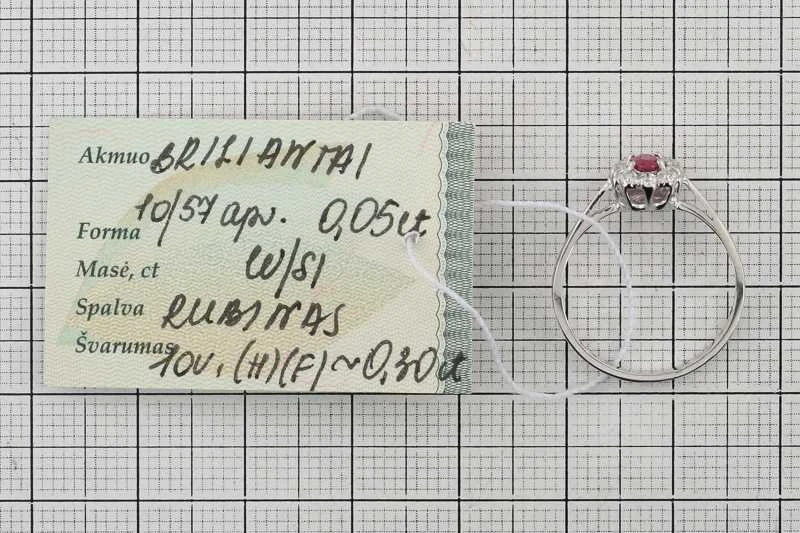 Akmuo BRILIANTAI
10/57 apv. 0,05 ct
Forma
Masė, ct W/SI
Spalva RUBINAS
Švarumas 1ov. (H)(F) ~0,30 ct